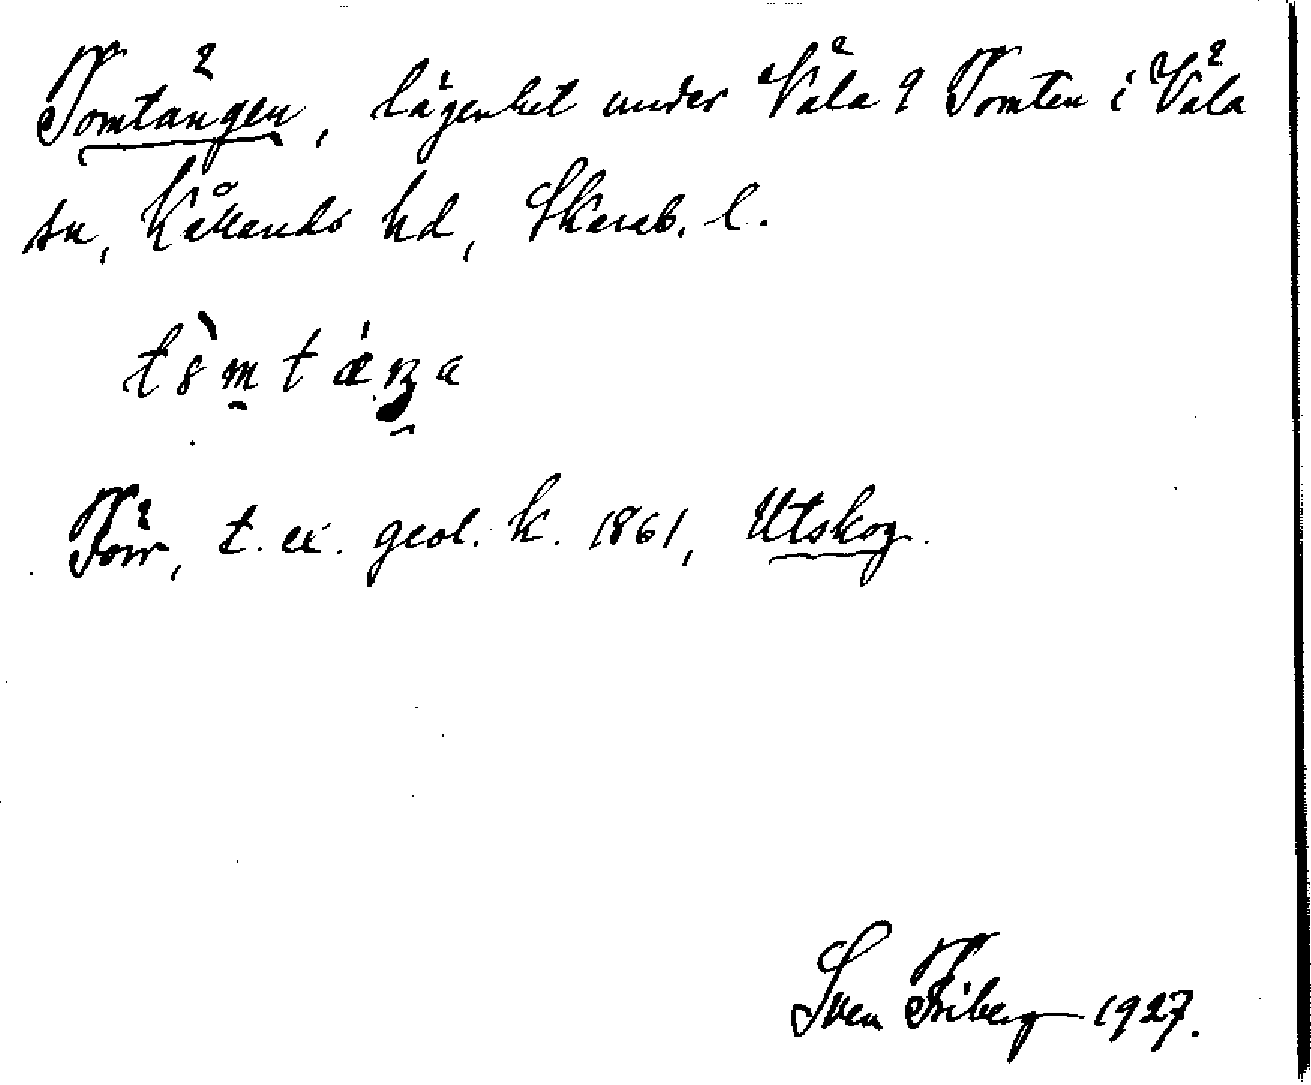 Tomtängen, lägenhet under Väla 9 Tomten i Väla
sn, Kållands hd, Skarab. l.
Förr, t. ex. geol. k. 1861, Utskog.
Sven Friberg 1927.